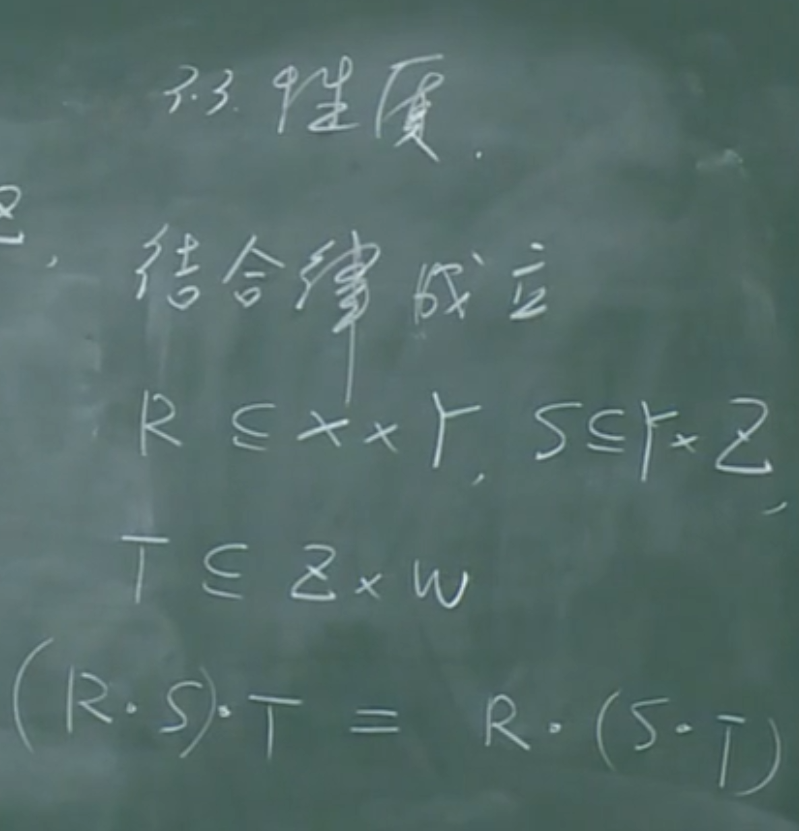 3.3. 性质.
结合律成立
R ⊆ X × Y, S ⊆ Y × Z,
T ⊆ Z × W
(R·S)·T = R·(S·T)